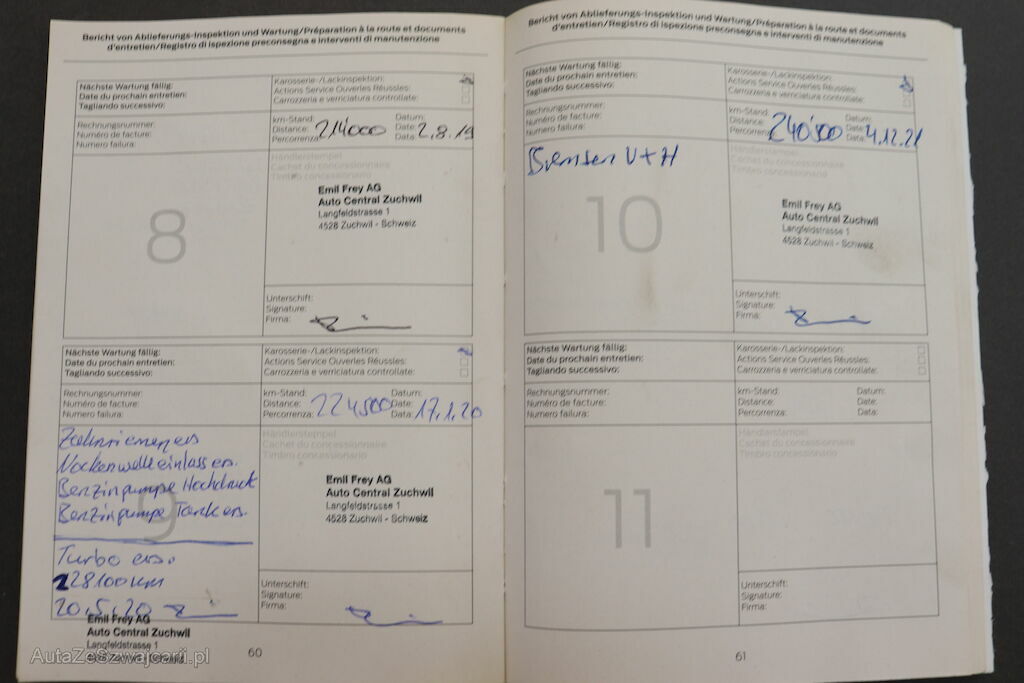 Bericht von Ablieferungs-Inspektion und Wartung/Préparation à la route et documents
d'entretien/Registro di ispezione preconsegna e interventi di manutenzione
Nächste Wartung fällig:
Date du prochain entretien:
Tagliando successivo:
Karosserie-/Lackinspektion:
Actions Service Ouveries Réussles:
Carrozzeria e verriciatura controllate:
Rechnungsnummer:
Numéro de facture:
Numero failura:
km-Stand:
Distance:
Percorrenza:
214'000
Datum:
Date:
Data:
2.8.19
8
Händlerstempel
Cachet du concessionnaire
Timbro concessionario
Emil Frey AG
Auto Central Zuchwil
Langfeldstrasse 1
4528 Zuchwil - Schweiz
Unterschrift:
Signature:
Firma:
Nächste Wartung fällig:
Date du prochain entretien:
Tagliando successivo:
Karosserie-/Lackinspektion:
Actions Service Ouveries Réussles:
Carrozzeria e verriciatura controllate:
Rechnungsnummer:
Numéro de facture:
Numero failura:
km-Stand:
Distance:
Percorrenza:
224500
Datum:
Date:
Data:
17.1.20
9
Zahnriemen ers
Nockenwelle einlass ers.
Benzinpumpe Hochdruck
Benzinpumpe Tank ers.
Turbo ers.
228100 km
20.5.20
Emil Frey AG
Auto Central Zuchwil
Langfeldstrasse 1
Händlerstempel
Cachet du concessionnaire
Timbro concessionario
Emil Frey AG
Auto Central Zuchwil
Langfeldstrasse 1
4528 Zuchwil - Schweiz
Unterschrift:
Signature:
Firma:
60
AutaZeSzwajcarii.pl
Bericht von Ablieferungs-Inspektion und Wartung/Préparation à la route et documents
d'entretien/Registro di ispezione preconsegna e interventi di manutenzione
Nächste Wartung fällig:
Date du prochain entretien:
Tagliando successivo:
Karosserie-/Lackinspektion:
Actions Service Ouveries Réussles:
Carrozzeria e verriciatura controllate:
Rechnungsnummer:
Numéro de facture:
Numero failura:
km-Stand:
Distance:
Percorrenza:
240'500
Datum:
Date:
Data:
4.12.21
Bremsen V+H
10
Händlerstempel
Cachet du concessionnaire
Timbro concessionario
Emil Frey AG
Auto Central Zuchwil
Langfeldstrasse 1
4528 Zuchwil - Schweiz
Unterschrift:
Signature:
Firma:
Nächste Wartung fällig:
Date du prochain entretien:
Tagliando successivo:
Karosserie-/Lackinspektion:
Actions Service Ouveries Réussles:
Carrozzeria e verriciatura controllate:
Rechnungsnummer:
Numéro de facture:
Numero failura:
km-Stand:
Distance:
Percorrenza:
Datum:
Date:
Data:
11
Händlerstempel
Cachet du concessionnaire
Timbro concessionario
Unterschrift:
Signature:
Firma:
61